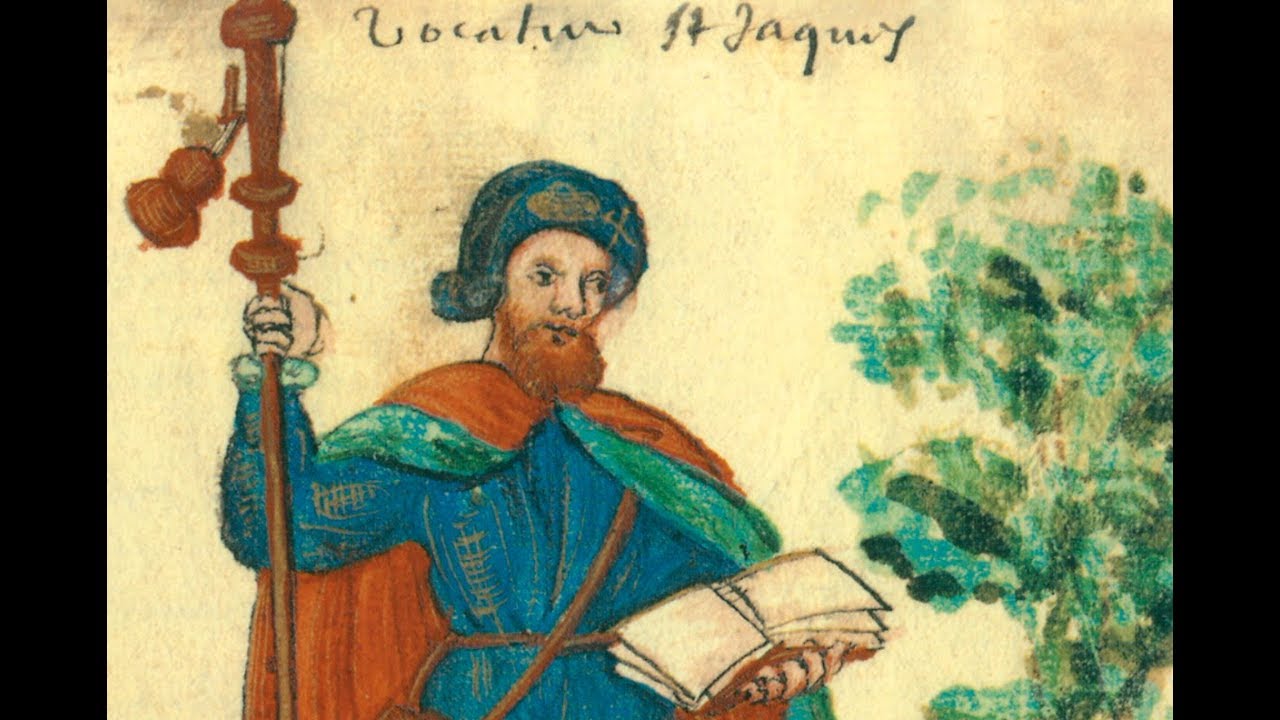 vocatur St Jaques